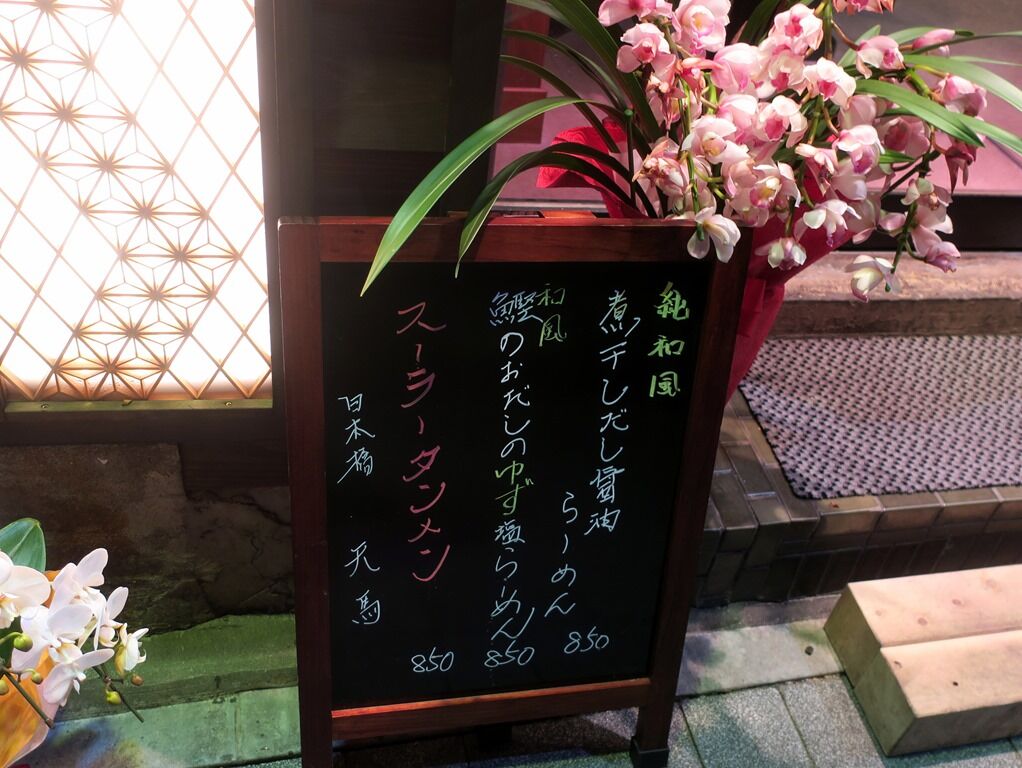 純和風
煮干しだし醤油
らーめん
850
和風
鰹のおだしのゆず塩らーめん
850
スーラータンメン
850
日本橋 天馬